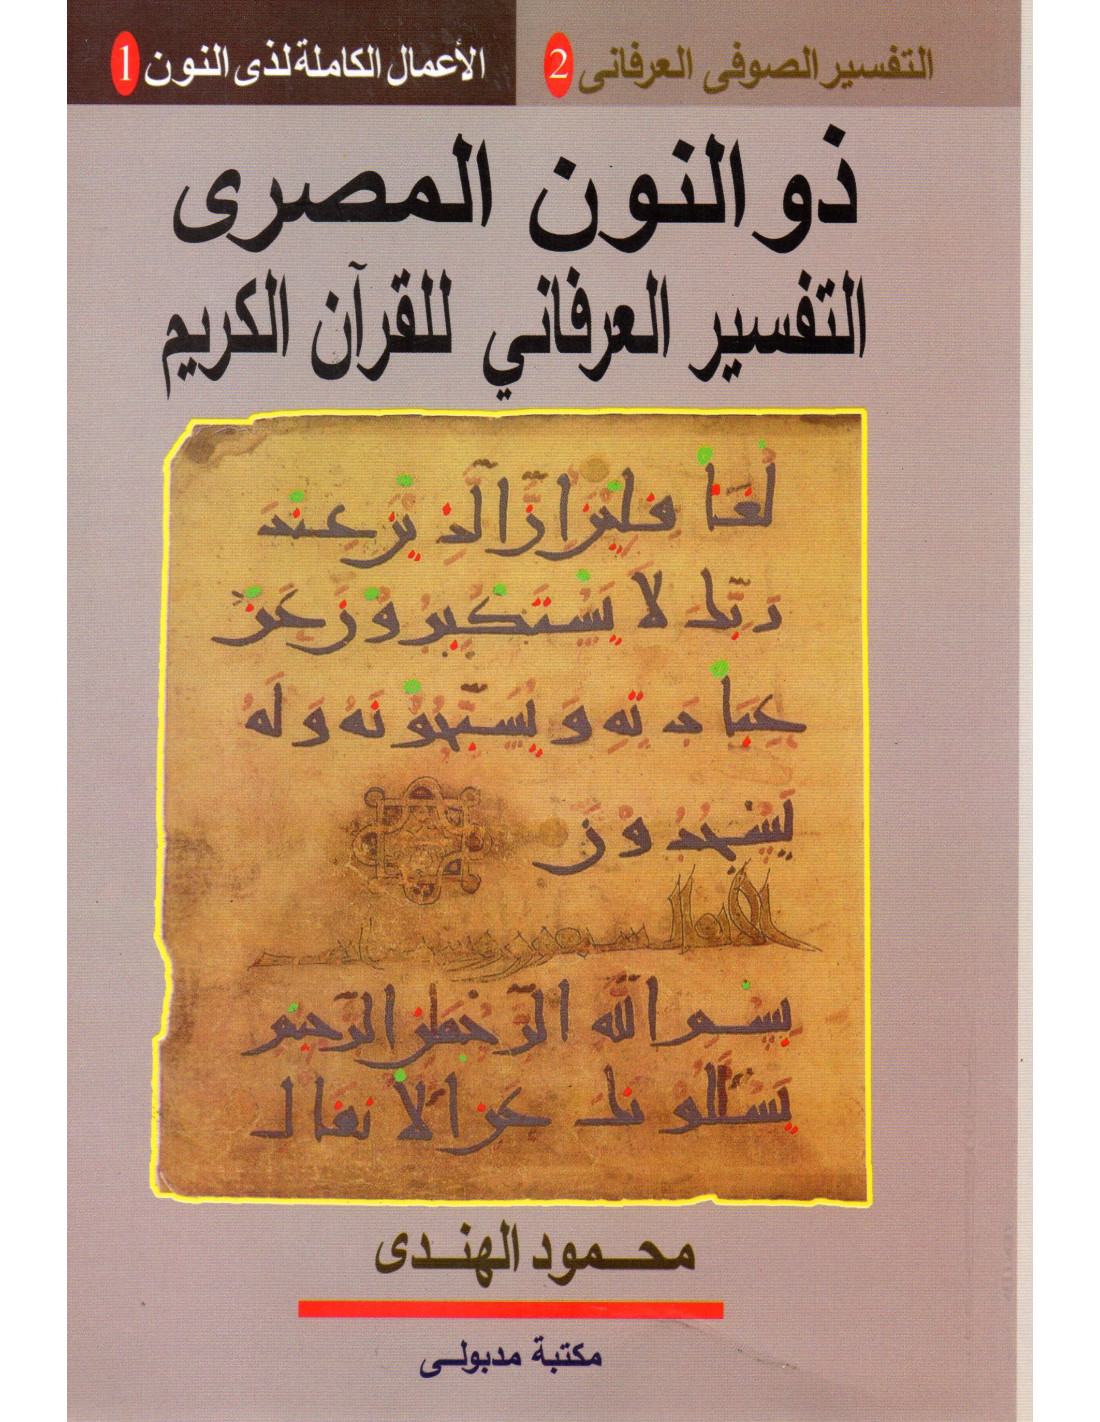 التفسير الصوفى العرفانى 2
الأعمال الكاملة لذى النون 1
ذو النون المصرى
التفسير العرفاني للقرآن الكريم
لغا فلين ان الذين عند
ربك لا يستكبرون عن
عبادته ويسبحونه وله
يسجدون
بسم الله الرحمن الرحيم
يسلونك عن الانفال
محمود الهندى
مكتبة مدبولى